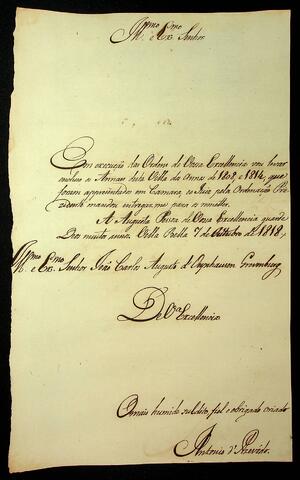 Ill.mo e Ex.mo Senhor
Em execução das Ordens de Vossa Excellencia vou levar
incluso os Annaes desta Villa do anno de 1808, a 1814, que
forão appresentados em Camara, e o Juiz pela Ordenação Pre
zidente mandou entregar me para os remetter.
A Augusta Pessoa de Vossa Excellencia guarde
Deos muitos annos. Villa Bella 7 de Outubro de 1818,
Ill.mo e Ex.mo Senhor João Carlos Augusto d'Oeynhausen Gravenberg
De V.a Excellencia
O mais humilde subdito, fiel e obrigado criado
Antonio d' Azevedo.